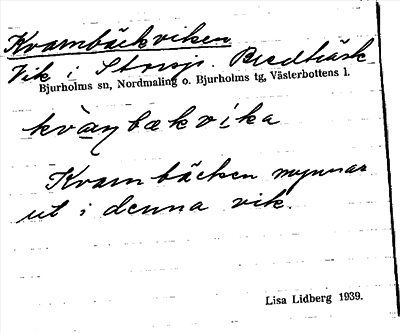 Kvarnbäckviken
Vik i Storsjö. Bredträsk
Bjurholms sn, Nordmaling o. Bjurholms tg, Västerbottens l.
kvàɳbækvíka
Kvarnbäcken mynnar
ut i denna vik.
Lisa Lidberg 1939.